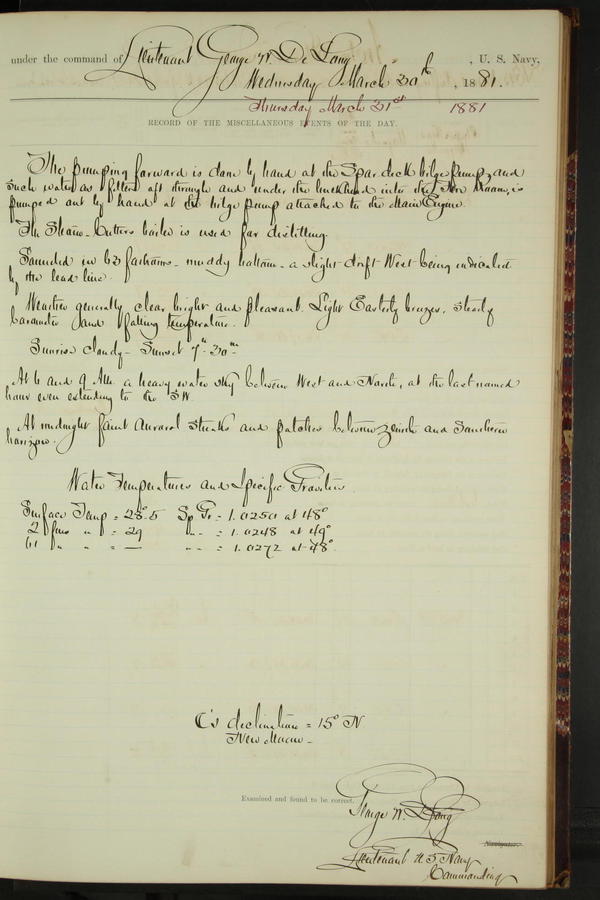 under the command of Lieutenant George W. De Long, U. S. Navy,
Wednesday March 30th, 1881.
Thursday March 31st 1881
RECORD OF THE MISCELLANEOUS EVENTS OF THE DAY.
The pumping forward is done by hand at the Spar deck bilge pump, and
such water as filters aft through and under the bulkhead into the Fire Room, is
pumped out by hand at the bilge pump attached to the Main Engine.
The Steam-Cutters boiler is used for distilling.
Sounded in 62 fathoms - muddy bottom - a slight drift West being indicated
by the lead line.
Weather generally clear bright and pleasant. Light Easterly breezes, steady
barometer and falling temperature.
Sunrise cloudy - Sunset 7h 30m
At 6 and 9 AM a heavy water sky between West and North, at the last named
hour even extending to the SW.
At midnight faint Auroral streaks and patches between zenith and Southern
horizon.
Water Temperatures and Specific Gravities
Surface Temp = 28°.5 Sp Gr = 1.0250 at 48°
2 fms " " = 29 " " = 1.0248 at 49°
61 " " " = — " " = 1.0272 at 48°.
C's declination = 15° N
New Moon -
Examined and found to be correct.
George W. De Long
Navigator.
Lieutenant U.S. Navy
Commanding